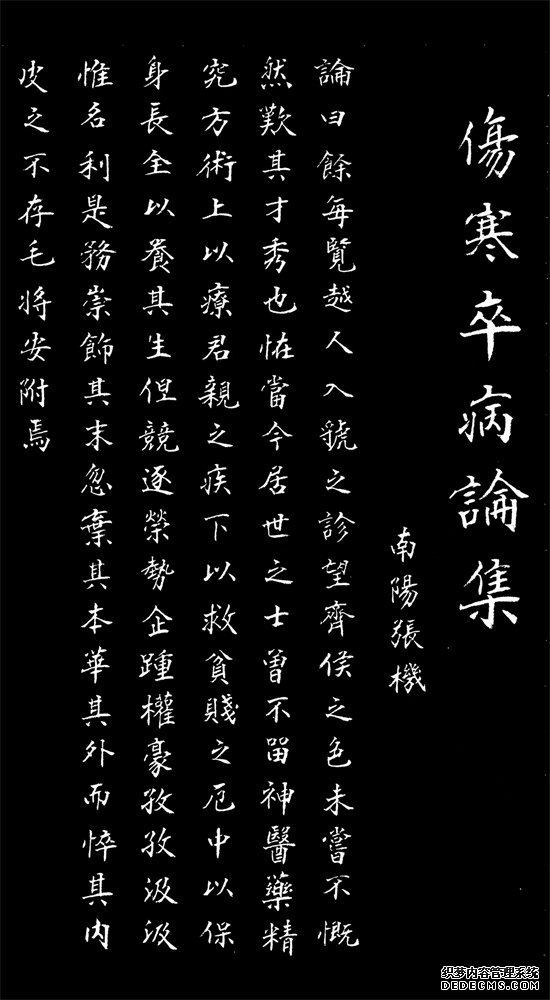 傷寒卒病論集
南陽張機
論曰餘每覽越人入虢之診望齊侯之色未嘗不慨
然歎其才秀也恠當今居世之士曾不畱神醫藥精
究方術上以療君親之疾下以救貧賤之厄中以保
身長全以養其生但競逐榮勢企踵權豪孜孜汲汲
惟名利是務崇飾其末忽棄其本華其外而悴其內
皮之不存毛將安附焉
织梦内容管理系统
DEDECMS.COM